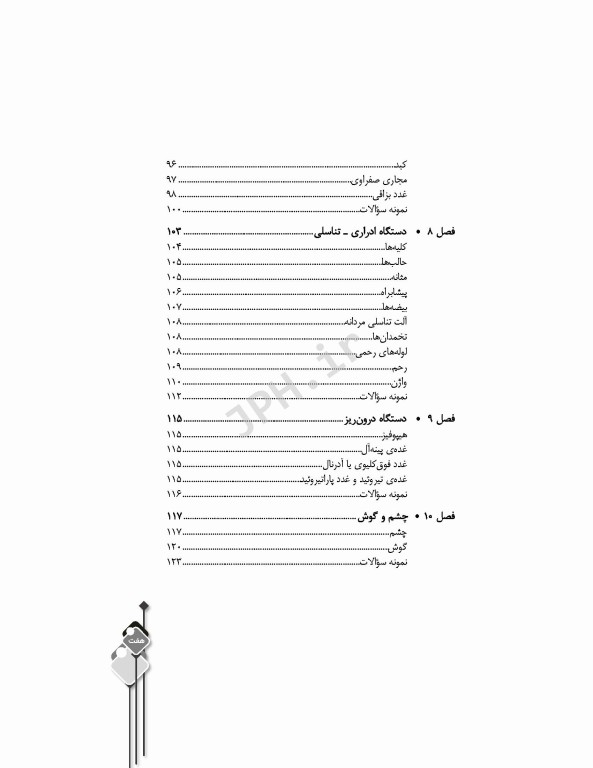 کبد ۹۶
مجاری صفراوی ۹۷
غدد بزاقی ۹۸
نمونه سؤالات ۱۰۰
فصل ۸ • دستگاه ادراری ـ تناسلی ۱۰۳
کلیه‌ها ۱۰۴
حالب‌ها ۱۰۵
مثانه ۱۰۵
پیشابراه ۱۰۶
بیضه‌ها ۱۰۷
آلت تناسلی مردانه ۱۰۸
تخمدان‌ها ۱۰۸
لوله‌های رحمی ۱۰۸
رحم ۱۰۹
واژن ۱۱۰
نمونه سؤالات ۱۱۲
فصل ۹ • دستگاه درون‌ریز ۱۱۵
هیپوفیز ۱۱۵
غده‌ی پینه‌آل ۱۱۵
غدد فوق‌کلیوی یا آدرنال ۱۱۵
غده‌ی تیروئید و غدد پاراتیروئید ۱۱۵
نمونه سؤالات ۱۱۶
فصل ۱۰ • چشم و گوش ۱۱۷
چشم ۱۱۷
گوش ۱۲۰
نمونه سؤالات ۱۲۳
هفت
JPH.ir